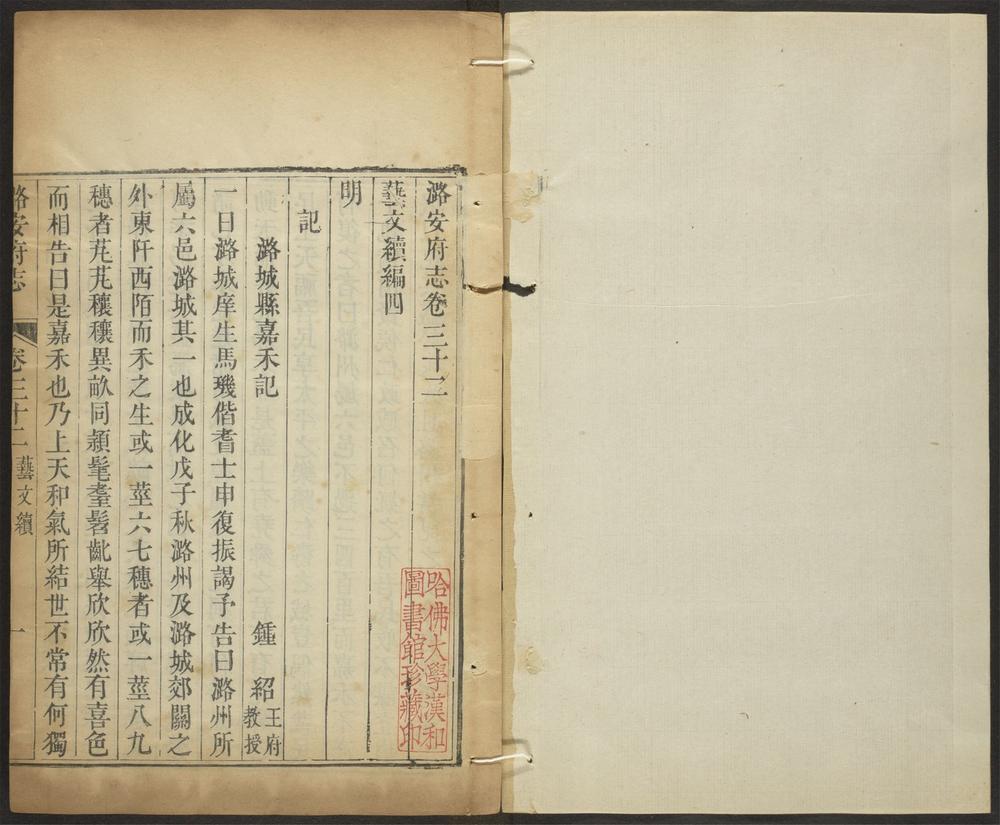 潞安府志卷三十二
藝文續編四
明
記
潞城縣嘉禾記 鍾紹 王府教授
一日潞城庠生馬璣偕耆士申復振謁予告曰潞州所
屬六邑潞城其一也成化戊子秋潞州及潞城郊關之
外東阡西陌而禾之生或一莖六七穗者或一莖八九
穗者芃芃穰穰異畝同穎髦耋髫齔舉欣欣然有喜色
而相告曰是嘉禾也乃上天和氣所結世不常有何獨
潞安府志 卷三十二 藝文續 一
哈佛大學漢和
圖書館珍藏印